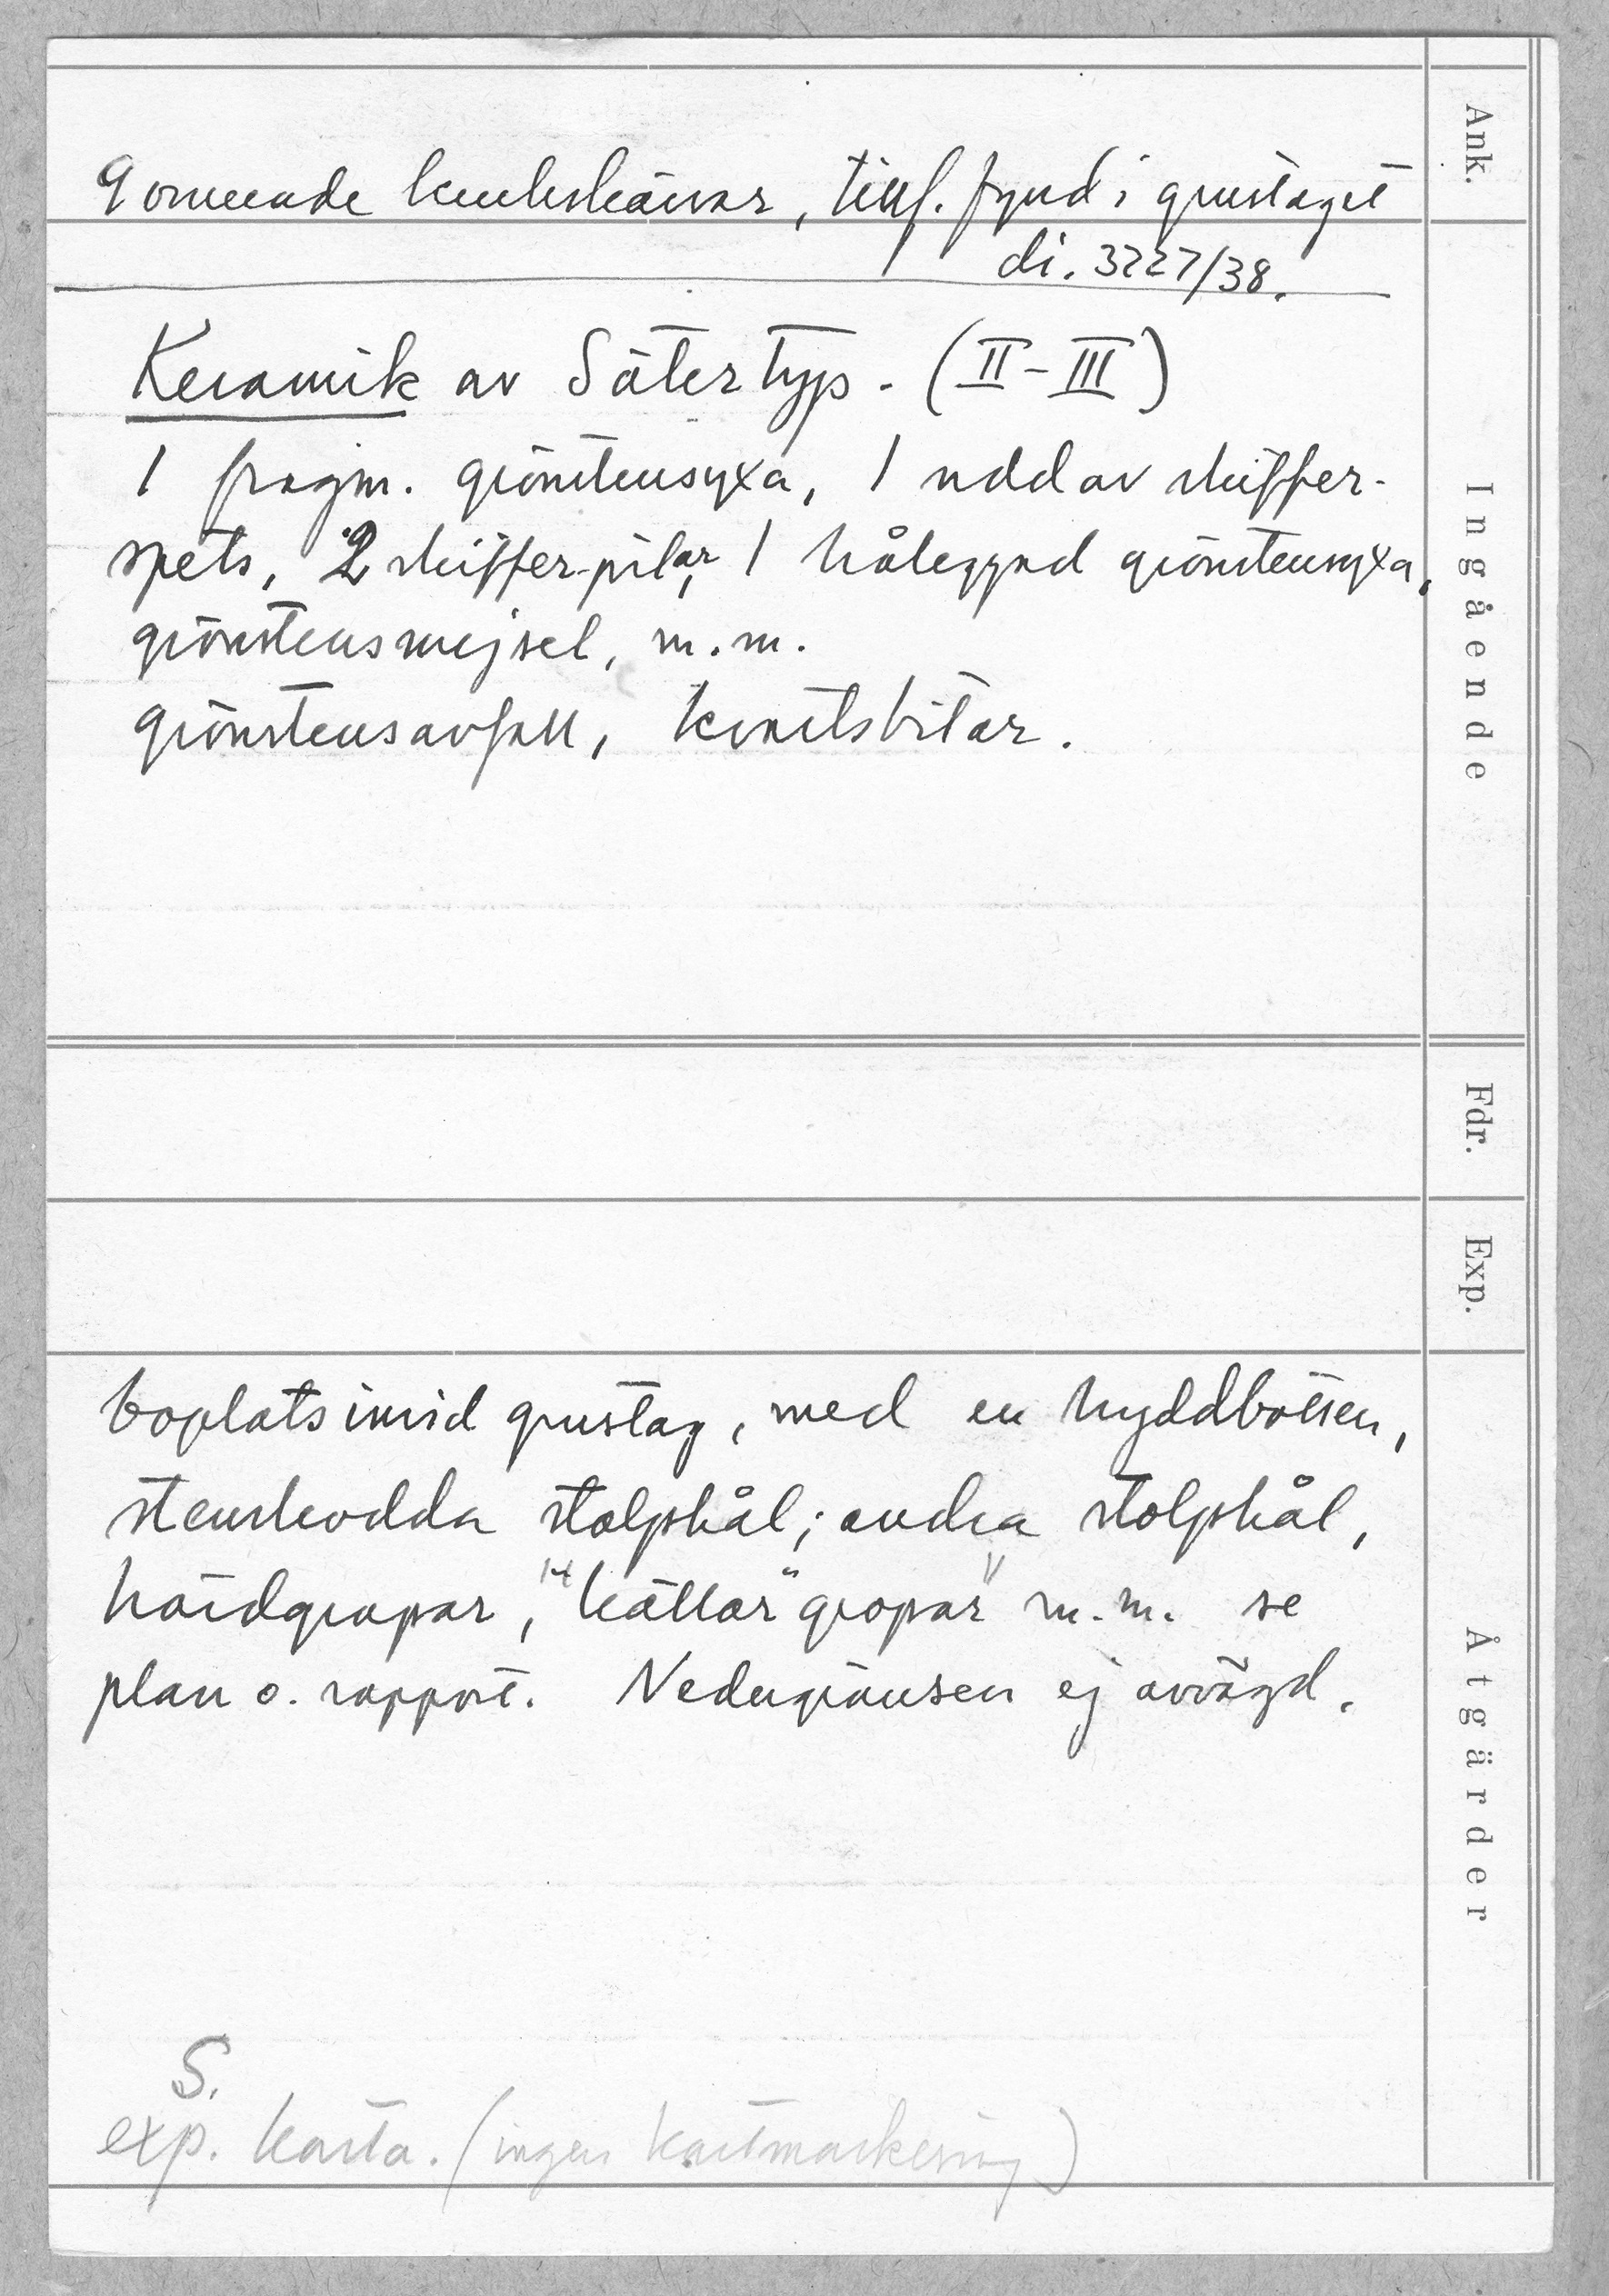 Ank.
9 ornerade krukskärvor, tillf. fynd i grustaget
di. 3227/38.
Ingående
Keramik av Säter typ. (II-III)
1 fragm. grönstensyxa, 1 udd av skiffer-
spets, 2 skiffer-pilar, 1 håleggad grönstensyxa,
grönstensmejsel, m.m.
grönstensavfall, kvartsbitar.
Fdr.
Exp.
Åtgärder
boplats invid grustag, med en hyddbotten,
stenskodda stolphål; andra stolphål,
härdgropar, "källar" gropar" m.m. se
plan o. rapport. Nedergränsen ej avvägd.
S.
exp. karta. (ingen kartmarkering)